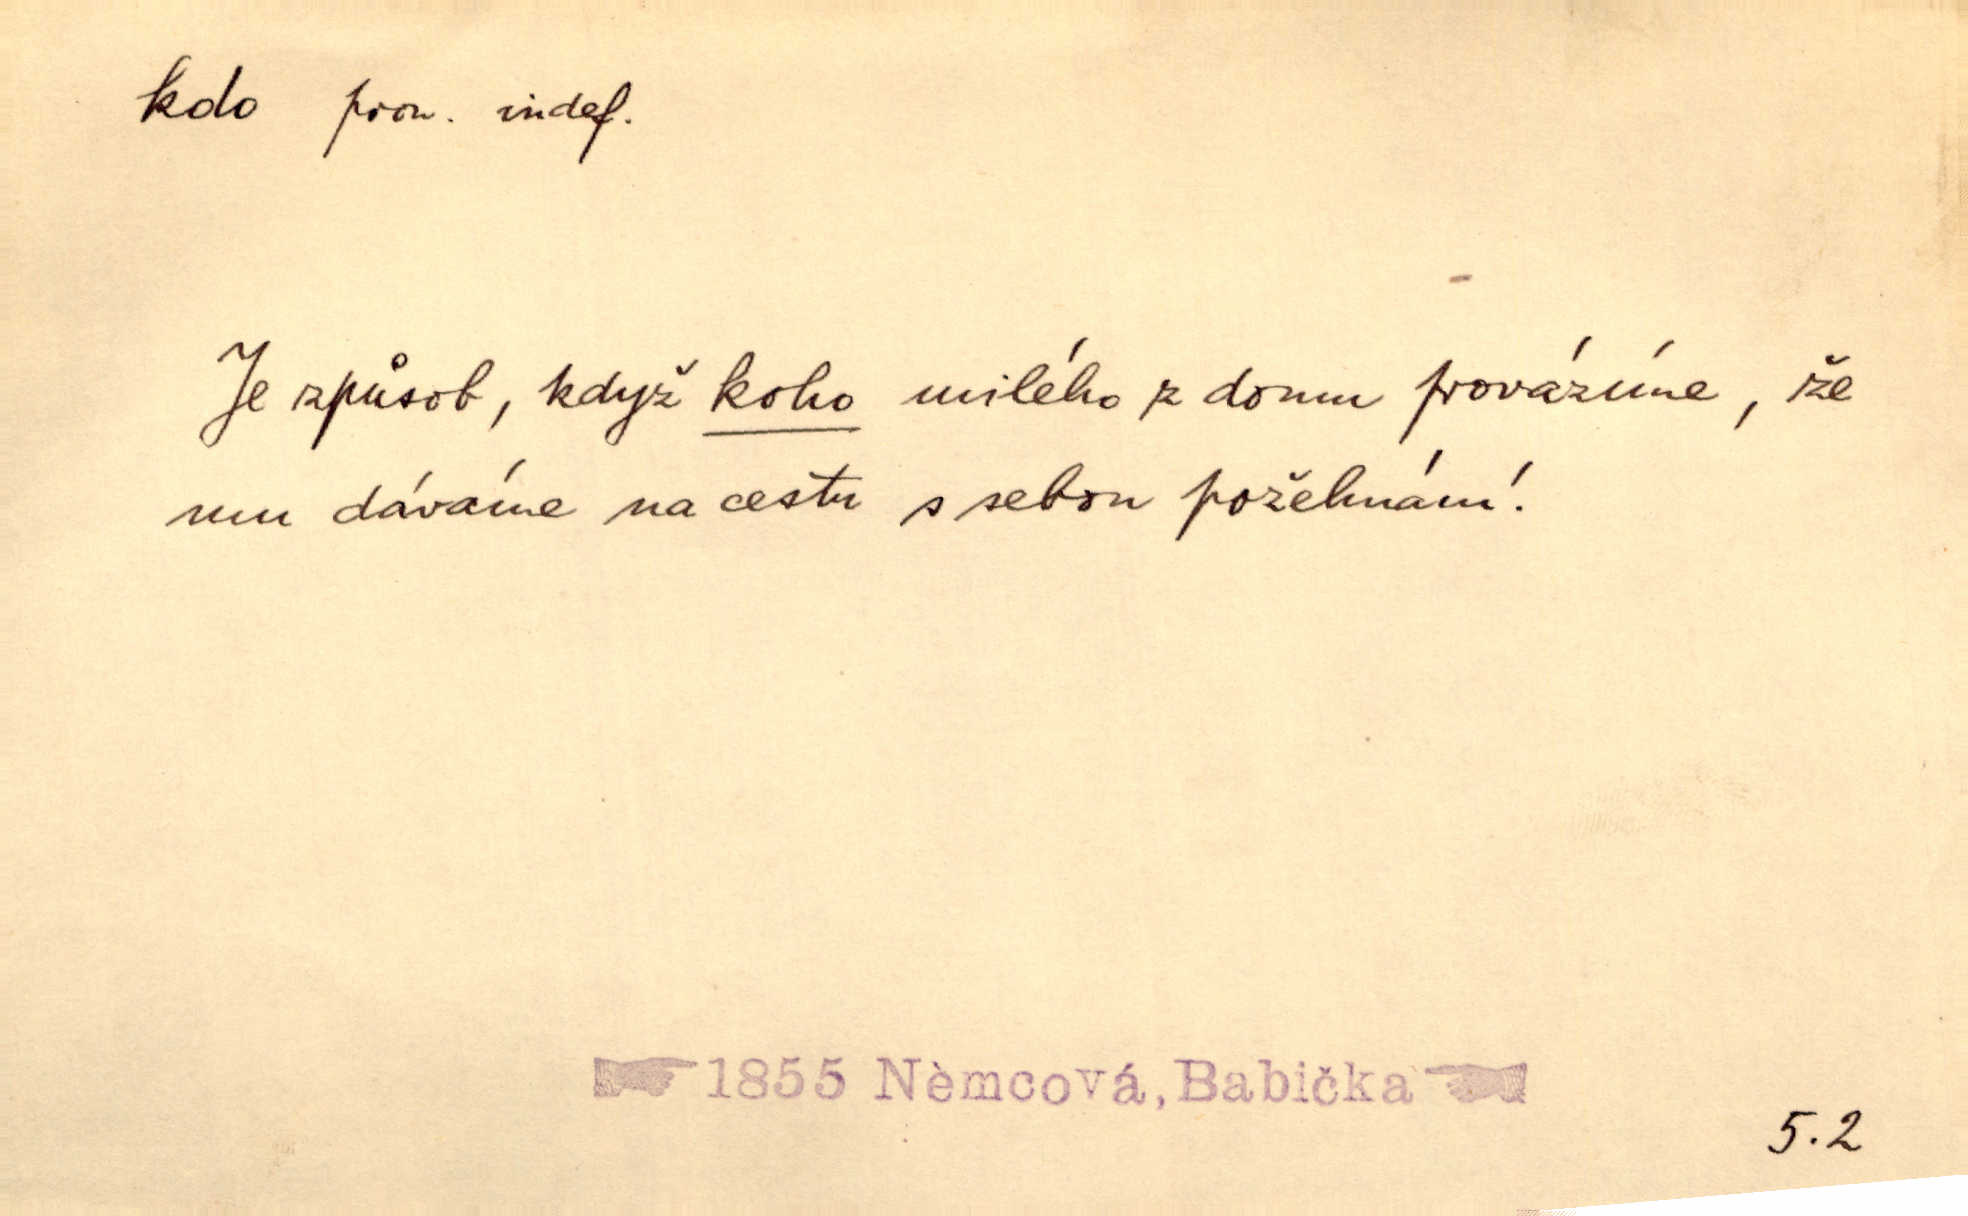 kdo pron. indef.
Je způsob, když koho milého z domu provázíme, že
mu dáváme na cestu s sebou požehnání.
1855 Němcová, Babička
5.2